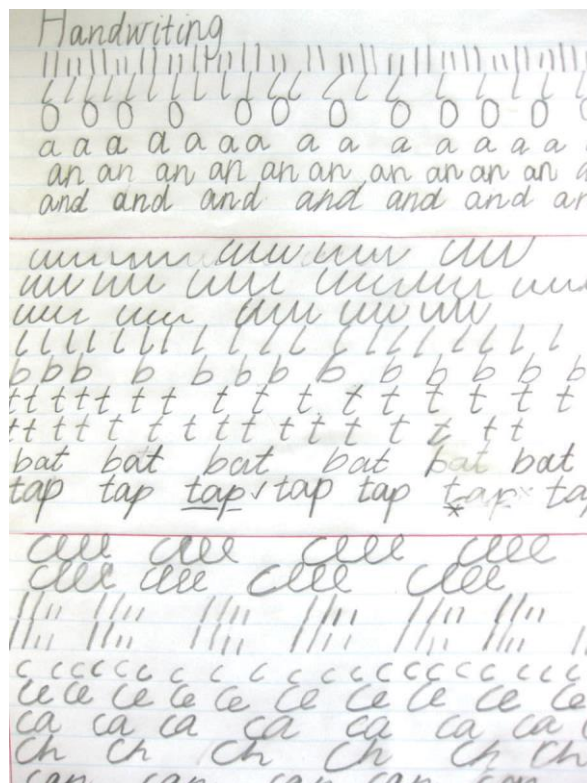 Handwriting
l l l l l l l l l l l l l l l
O O O O O O O O O O O O
a a a a a a a a a a a a a a a
an an an an an an an an an an an
and and and and and and an
l l l l l l l l l l l l l l l l l l
b b b b b b b b b b b b b b
t t t t t t t t t t t t t t t
t t t t t t t t t t t t t t t t
bat bat bat bat bat bat
tap tap tap tap tap tap ta
c c c c c c c c c c c c c c c c c c
ce ce ce ce ce ce ce ce ce ce
ca ca ca ca ca ca ca
ch ch ch ch ch ch
can can can can can